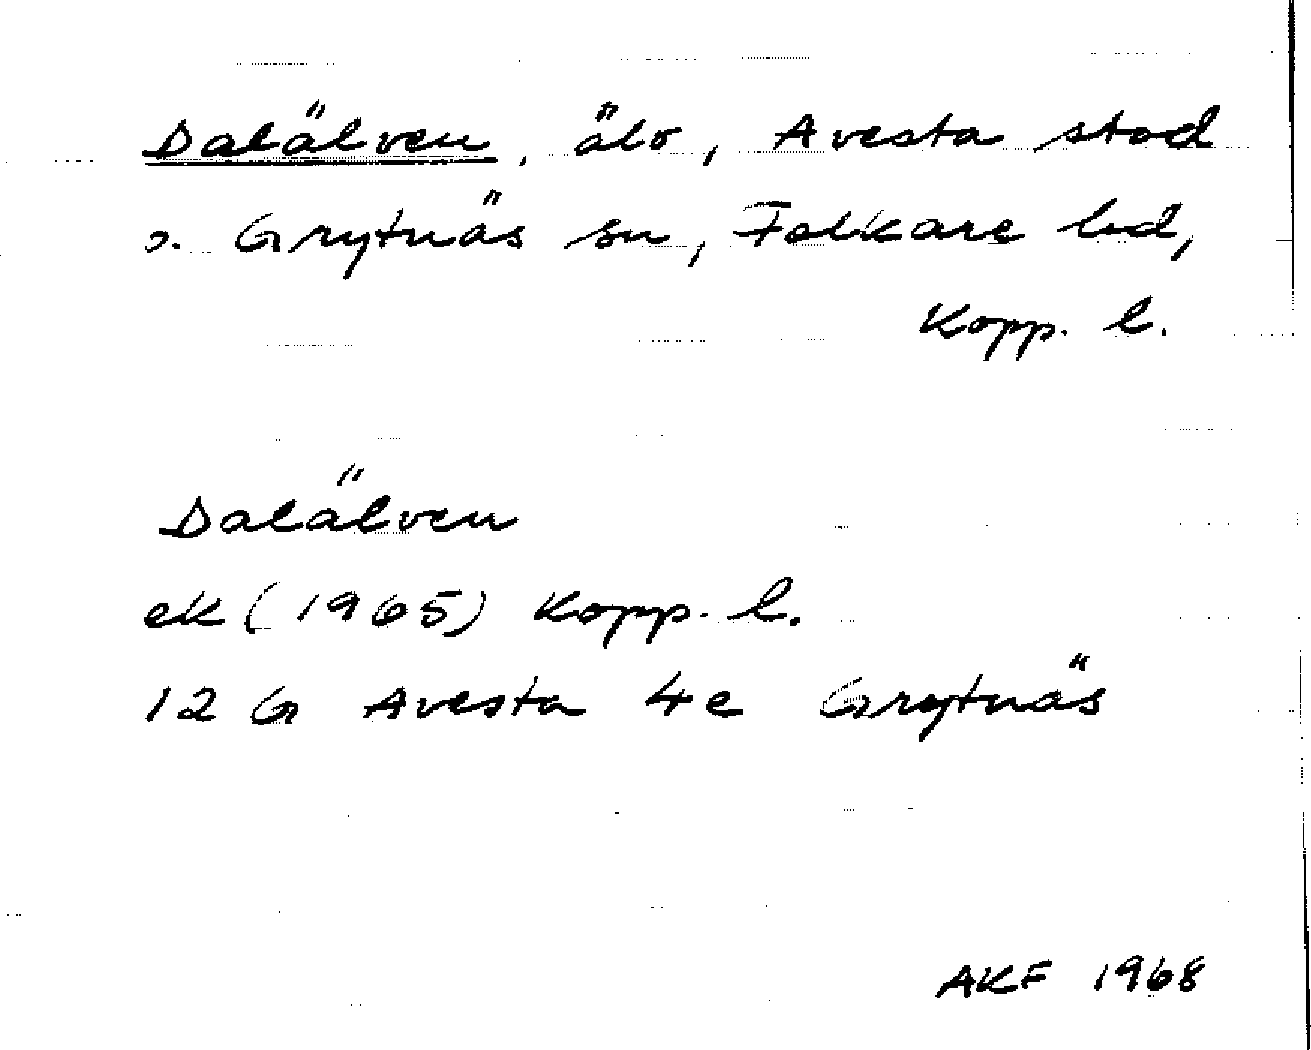 Dalälven, älv, Avesta stad
o. Grytnäs sn, Folkare hd,
Kopp. l.
Dalälven
ek (1965) Kopp. l.
12 G Avesta 4e Grytnäs
AKF 1968